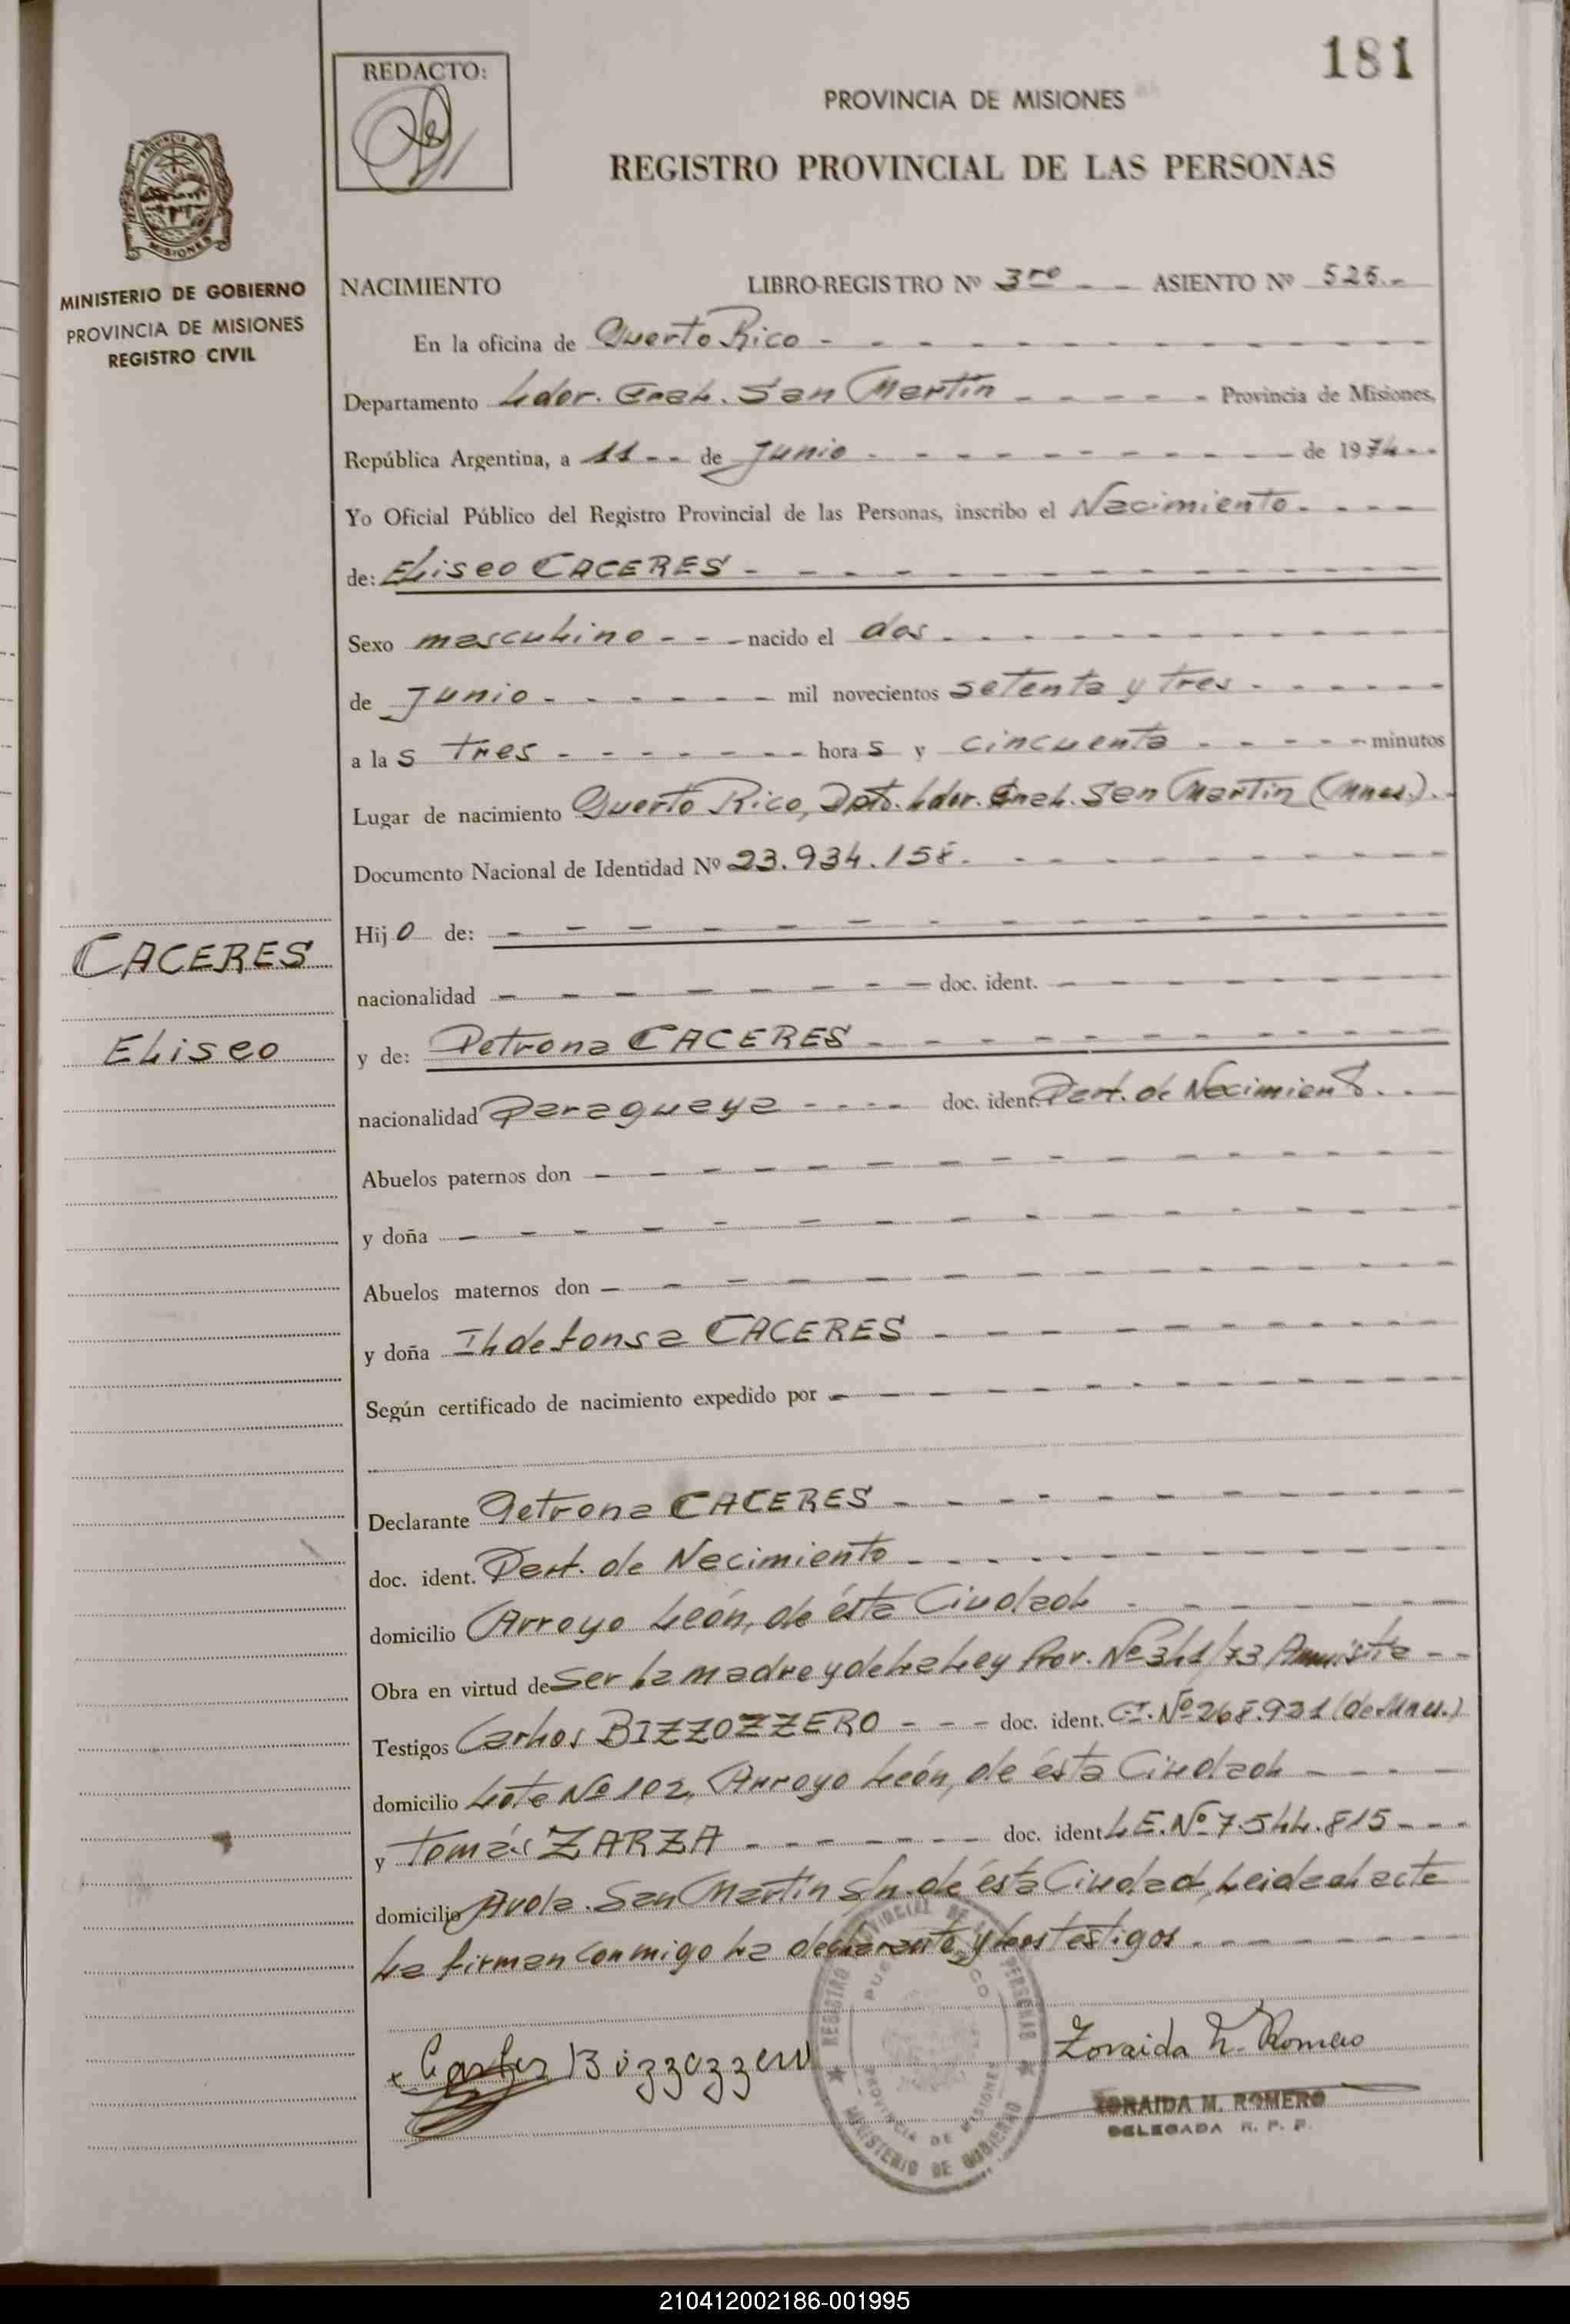 181
REDACTO:
PROVINCIA DE MISIONES
REGISTRO PROVINCIAL DE LAS PERSONAS
PROVINCIA DE
MISIONES
MINISTERIO DE GOBIERNO
PROVINCIA DE MISIONES
REGISTRO CIVIL
NACIMIENTO LIBRO-REGISTRO Nº 3ro - - ASIENTO Nº 525.-
En la oficina de Puerto Rico - - - - - - - - - -
Departamento Lder. Gral. San Martín - - - - - Provincia de Misiones,
República Argentina, a 11 - - de Junio - - - - - - - - - de 1974 - -
Yo Oficial Público del Registro Provincial de las Personas, inscribo el Nacimiento. - - -
de: Eliseo CACERES - - - - - - - - - -
Sexo masculino - - - nacido el dos - - - - - - - - -
de Junio - - - - - - mil novecientos setenta y tres - - - - -
a las tres - - - - - - - horas y cincuenta - - - - - minutos
Lugar de nacimiento Puerto Rico, Dpto. Lder. Gral. San Martín (Mnes.).
Documento Nacional de Identidad Nº 23.934.158. - - - - - - -
CACERES
Eliseo
Hijo de: - - - - - - - - - - - -
nacionalidad - - - - - - - - doc. ident. - - - - - -
y de: Petrona CACERES - - - - - - - - -
nacionalidad Paraguaya - - - - doc. ident. Part. de Nacimiento. - -
Abuelos paternos don - - - - - - - - - - - -
y doña - - - - - - - - - - - - -
Abuelos maternos don - - - - - - - - - - - -
y doña Ildefonsa CACERES - - - - - - - -
Según certificado de nacimiento expedido por - - - - - - - - - -
Declarante Petrona CACERES - - - - - - - - - -
doc. ident. Part. de Nacimiento - - - - - - - - -
domicilio Arroyo León, de ésta Ciudad - - - - - -
Obra en virtud de ser la madre y de la Ley Prov. Nº 341/73 Amnistía - -
Testigos Carlos BIZZOZZERO - - - doc. ident. C.I. Nº 268.921 (de Mnes.)
domicilio Lote Nº 102, Arroyo León, de ésta Ciudad - - - -
y Tomás ZARZA - - - - - - - doc. ident. L.E. Nº 7.544.815 - - -
domicilio Avda. San Martín s/n. de ésta Ciudad, Leida el acta
la firman conmigo la declarante y los testigos. - - - - - - -
REGISTRO PROVINCIAL DE LAS PERSONAS
PUERTO RICO
PROVINCIA DE MISIONES
MINISTERIO DE GOBIERNO
Carlos Bizzozzero
Zoraida M. Romero
ZORAIDA M. ROMERO
DELEGADA R. P. P.
210412002186-001995